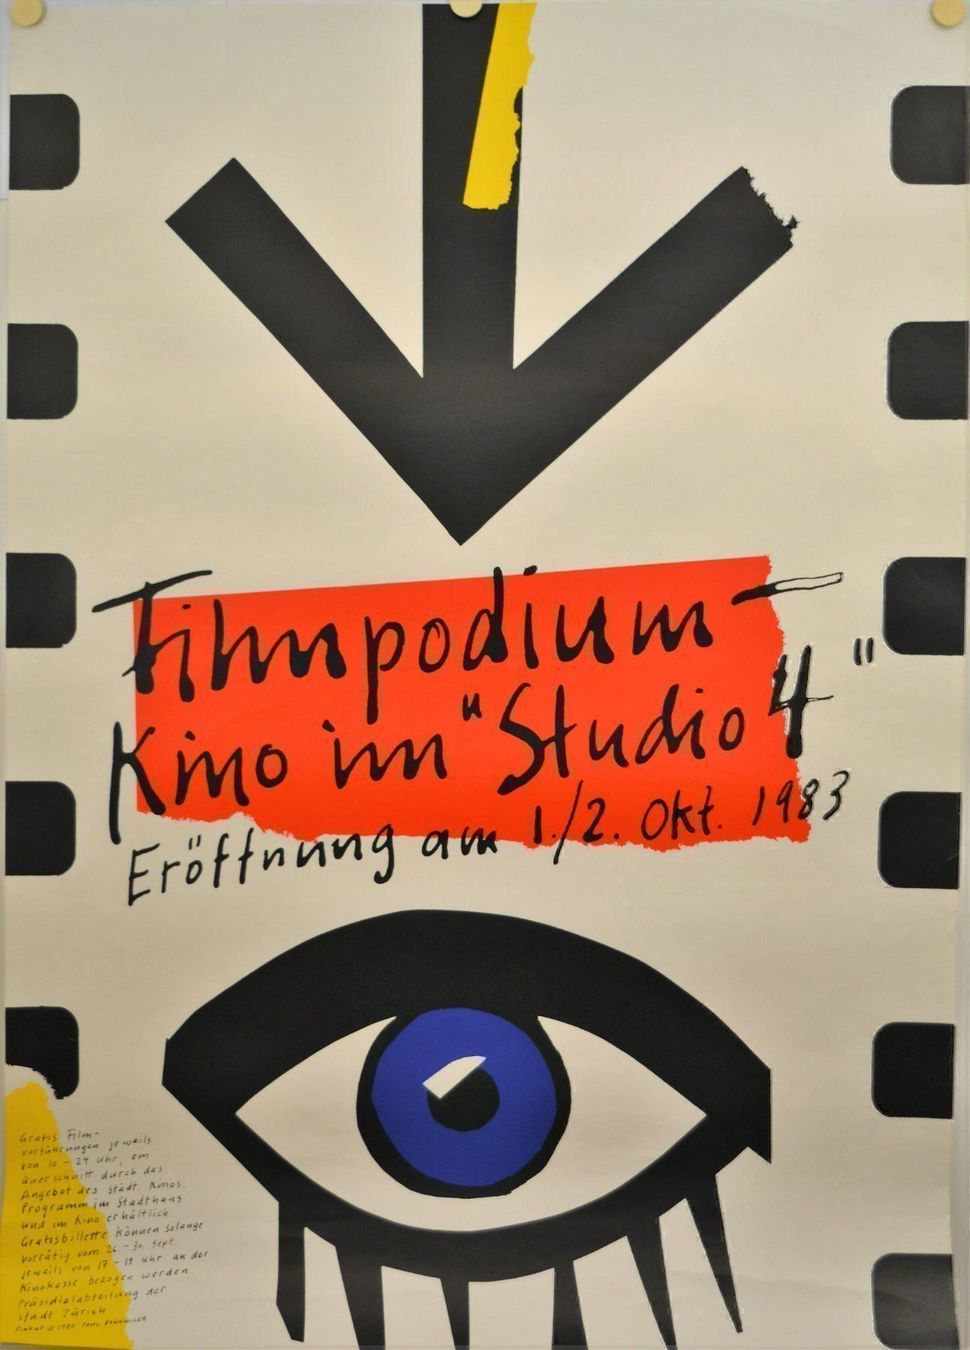 Filmpodium-
Kino im "Studio 4"
Eröffnung am 1./2. Okt. 1983
Gratis Film-
vorführungen jeweils
von 10 - 24 Uhr, ein
Querschnitt durch das
Angebot des Städt. Kinos.
Programm im Stadthaus
und im Kino erhältlich
Gratisbillette können solange
vorrätig vom 26. - 30. Sept.
jeweils von 17 - 19 Uhr an der
Kinokasse bezogen werden.
Präsidialabteilung der
Stadt Zürich
Plakat © 1983 Paul Brühwiler